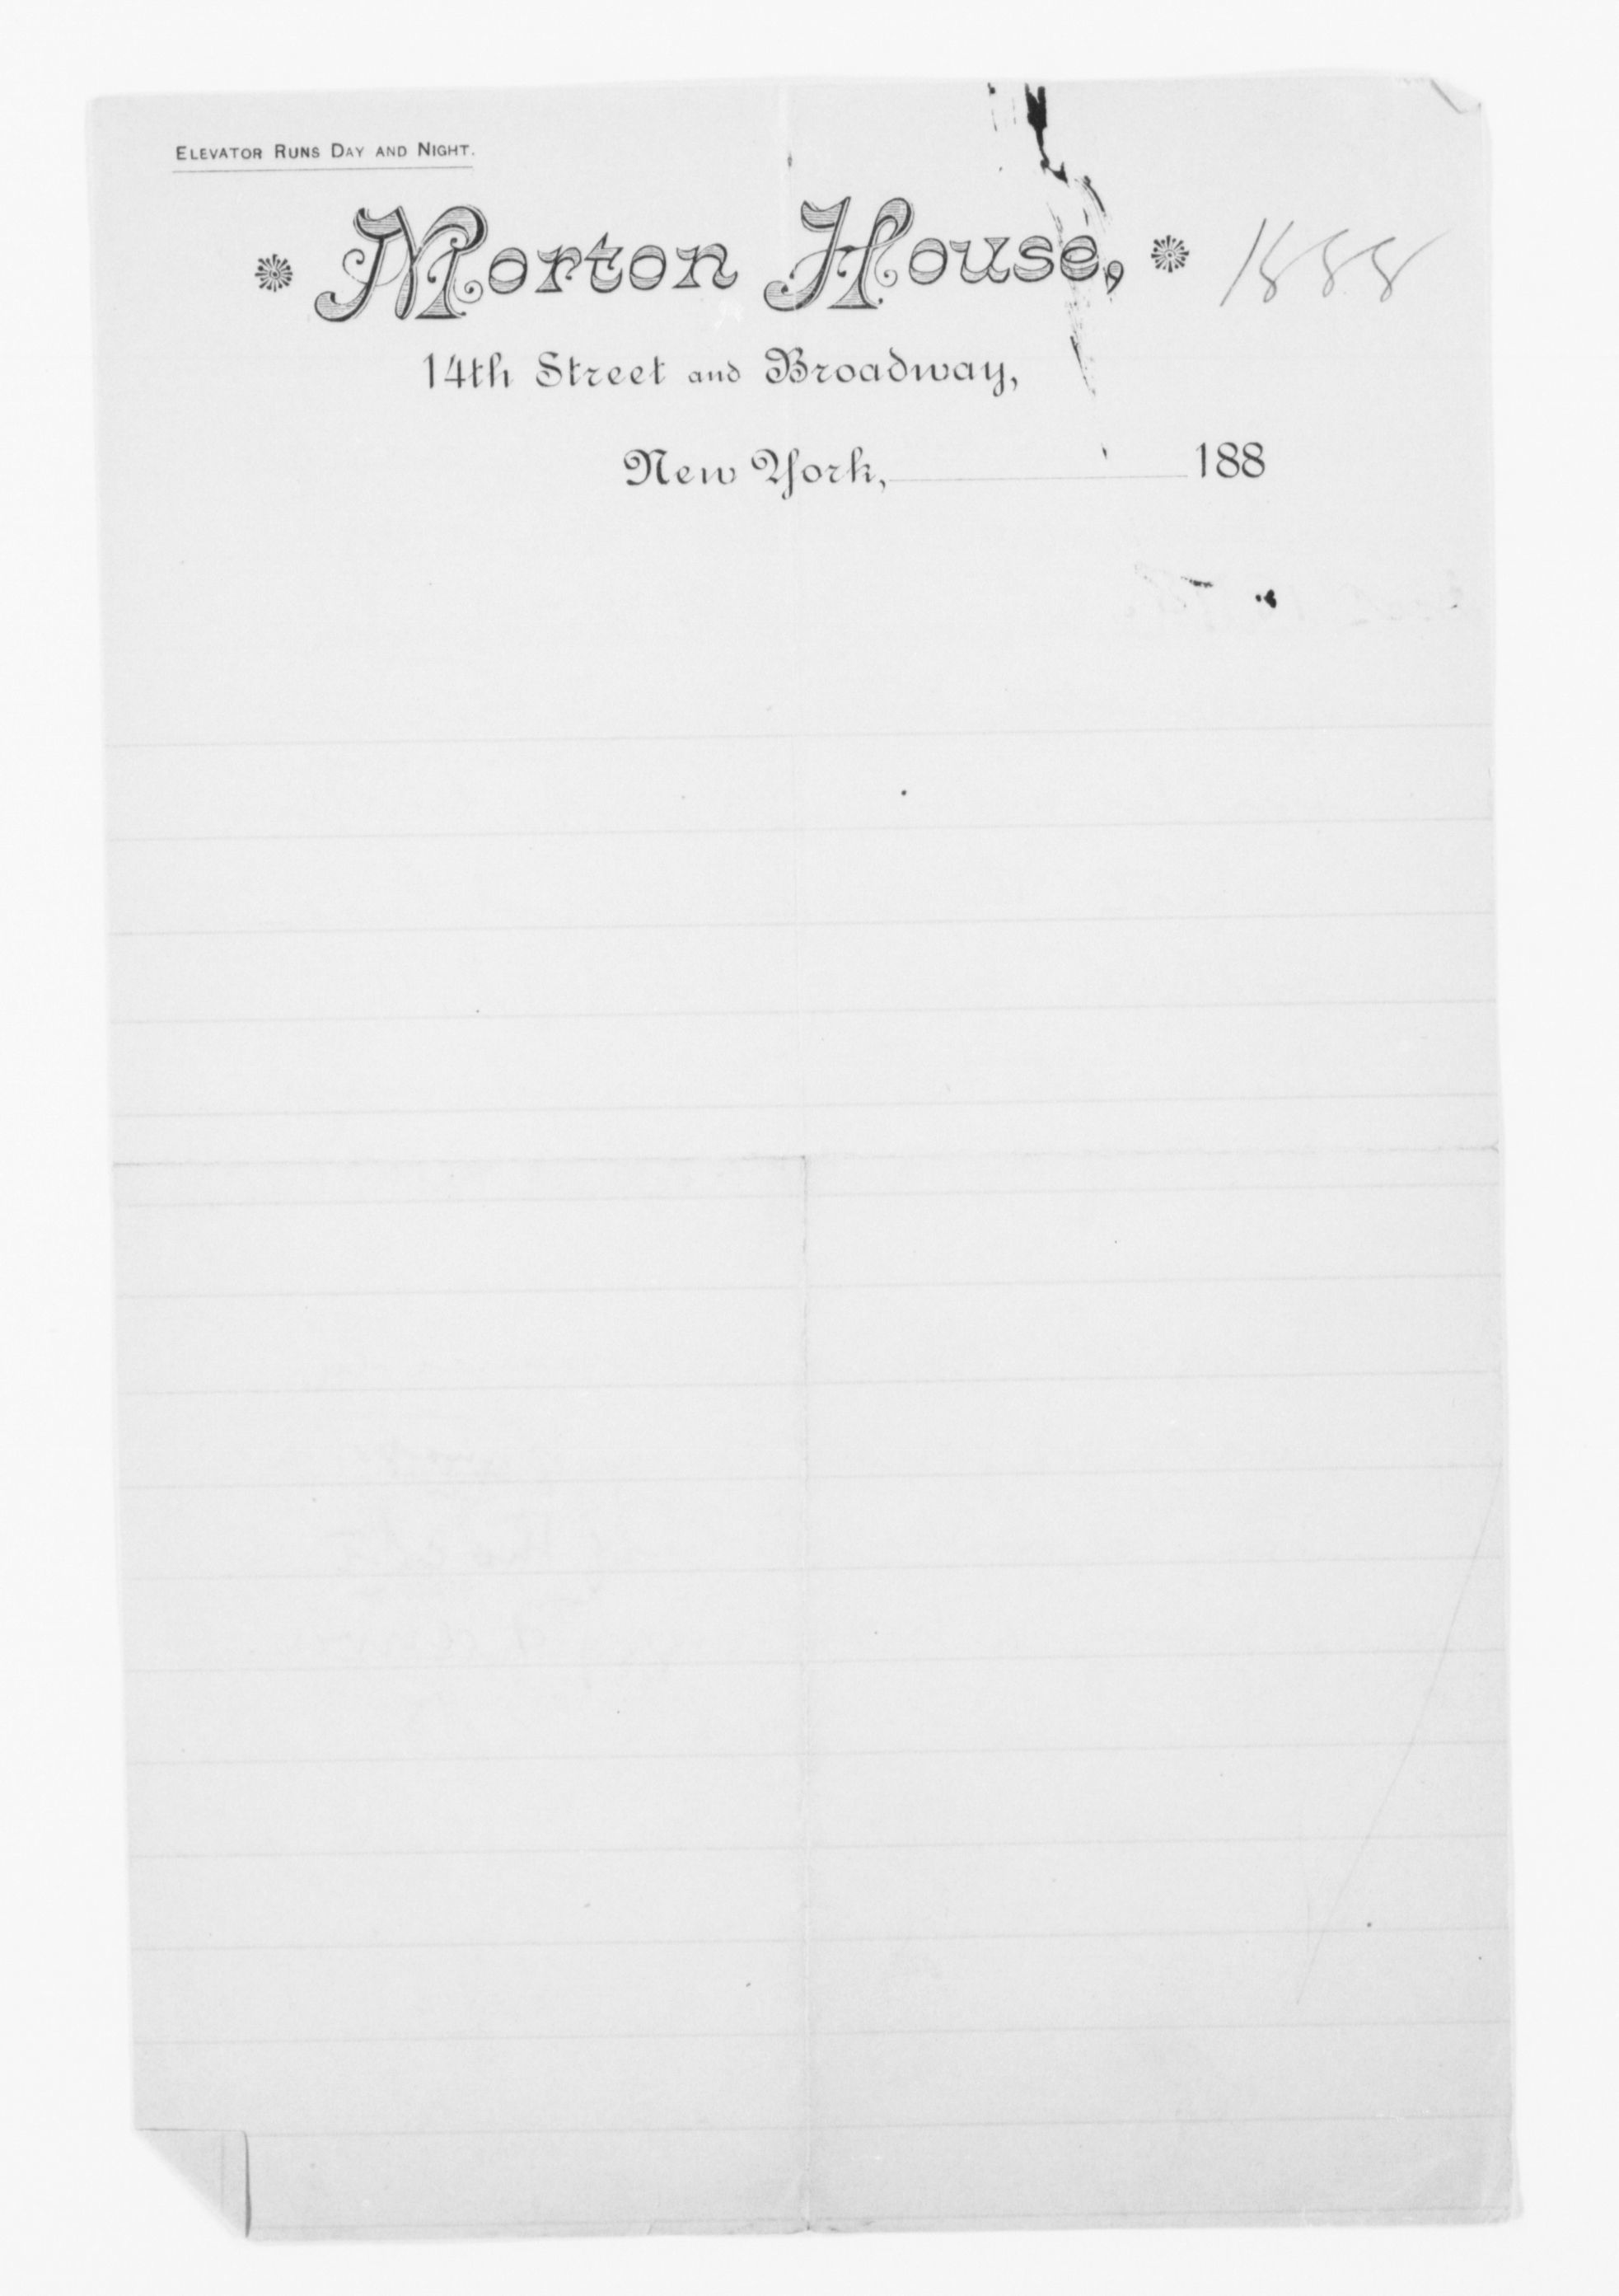 ELEVATOR RUNS DAY AND NIGHT.
Morton House, 1888
14th Street and Broadway,
New York, 188